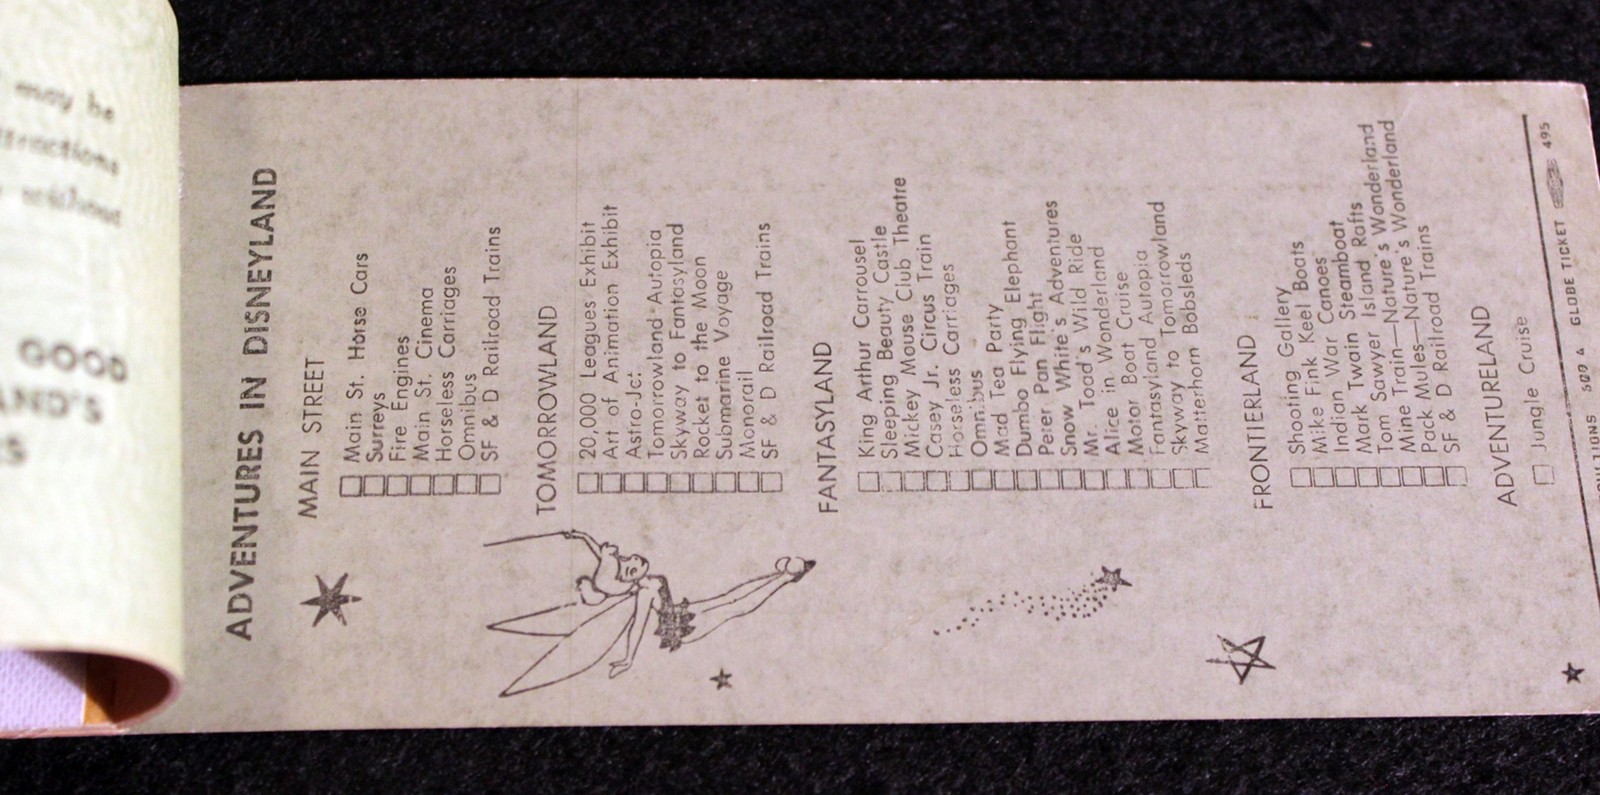 may be
ttractions
without
GOOD
AND'S
ADVENTURES IN DISNEYLAND
MAIN STREET
Main St. Horse Cars
Surreys
Fire Engines
Main St. Cinema
Horseless Carriages
Omnibus
SF & D Railroad Trains
TOMORROWLAND
20,000 Leagues Exhibit
Art of Animation Exhibit
Astro-Jet
Tomorrowland Autopia
Skyway to Fantasyland
Rocket to the Moon
Submarine Voyage
Monorail
SF & D Railroad Trains
FANTASYLAND
King Arthur Carrousel
Sleeping Beauty Castle
Mickey Mouse Club Theatre
Casey Jr. Circus Train
Horseless Carriages
Omnibus
Mad Tea Party
Dumbo Flying Elephant
Peter Pan Flight
Snow White's Adventures
Mr. Toad's Wild Ride
Alice in Wonderland
Motor Boat Cruise
Fantasyland Autopia
Skyway to Tomorrowland
Matterhorn Bobsleds
FRONTIERLAND
Shooting Gallery
Mike Fink Keel Boats
Indian War Canoes
Mark Twain Steamboat
Tom Sawyer Island Rafts
Mine Train—Nature's Wonderland
Pack Mules—Nature's Wonderland
SF & D Railroad Trains
ADVENTURELAND
Jungle Cruise
GLOBE TICKET 495